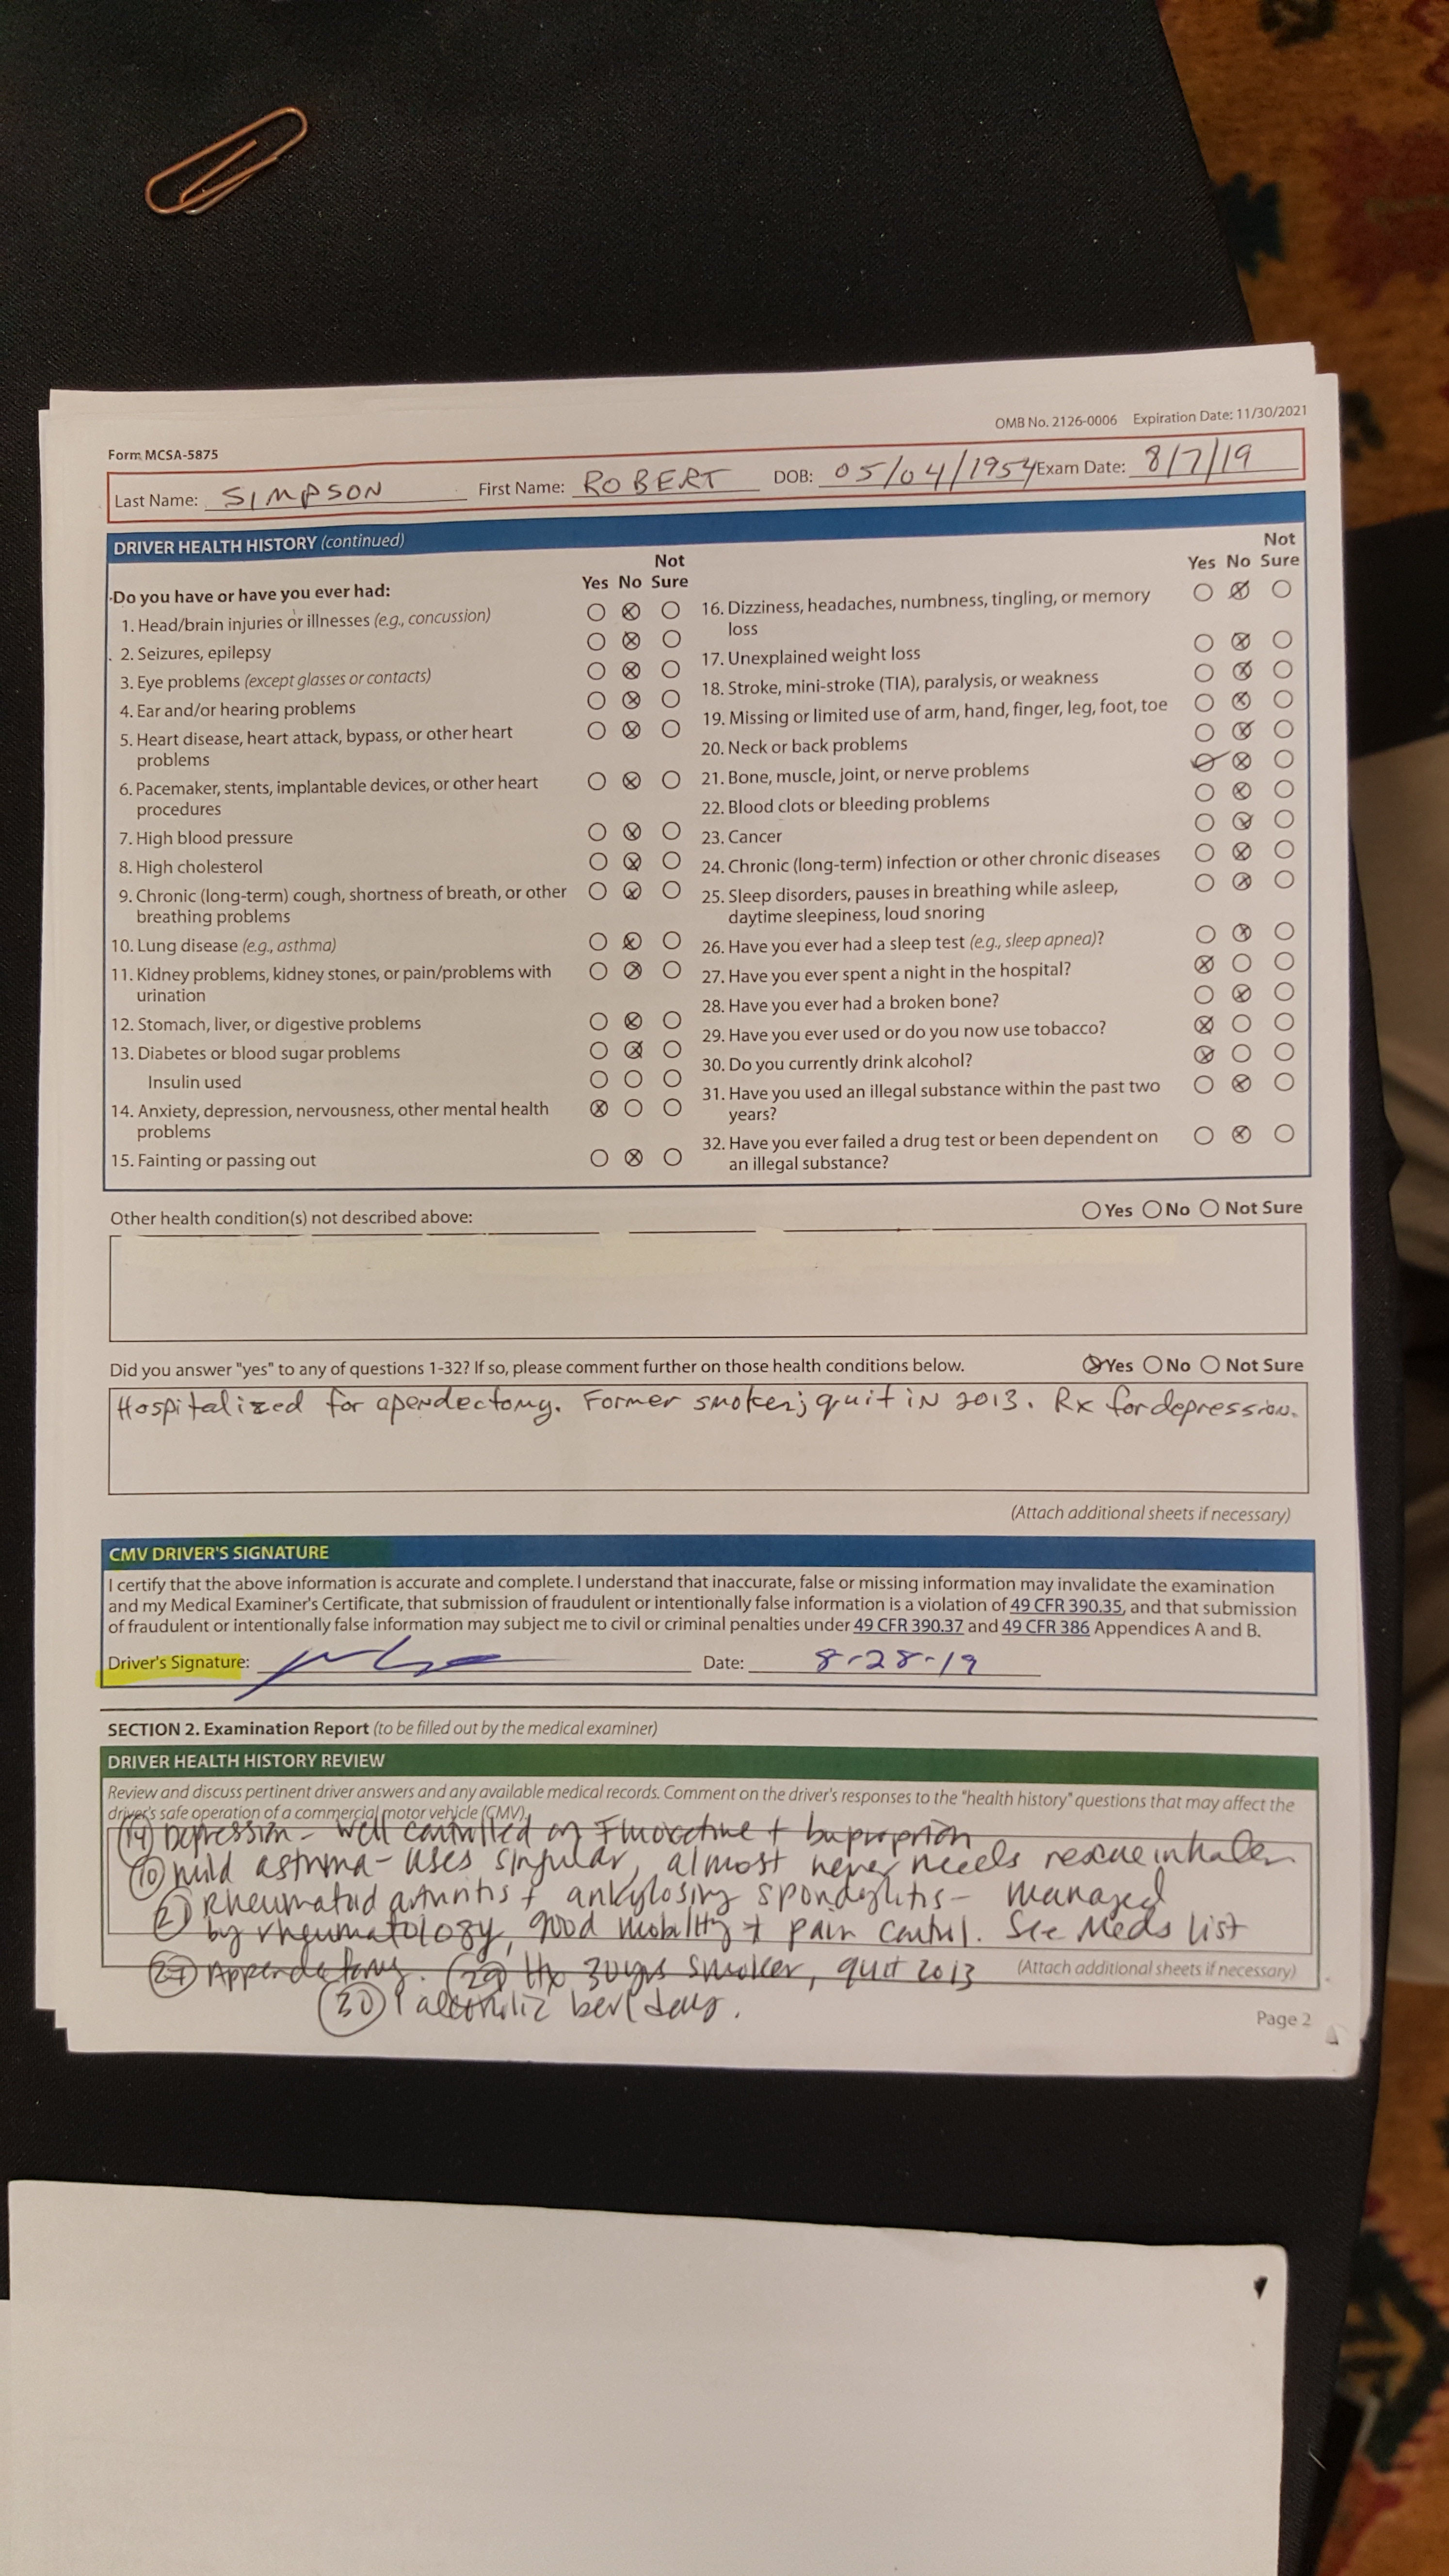 OMB No. 2126-0006 Expiration Date: 11/30/2021
Form MCSA-5875
Last Name: SIMPSON First Name: ROBERT DOB: 05/04/1954 Exam Date: 8/7/19
DRIVER HEALTH HISTORY (continued)
Do you have or have you ever had:
Yes No Not Sure
1. Head/brain injuries or illnesses (e.g., concussion)
2. Seizures, epilepsy
3. Eye problems (except glasses or contacts)
4. Ear and/or hearing problems
5. Heart disease, heart attack, bypass, or other heart
problems
6. Pacemaker, stents, implantable devices, or other heart
procedures
7. High blood pressure
8. High cholesterol
9. Chronic (long-term) cough, shortness of breath, or other
breathing problems
10. Lung disease (e.g., asthma)
11. Kidney problems, kidney stones, or pain/problems with
urination
12. Stomach, liver, or digestive problems
13. Diabetes or blood sugar problems
Insulin used
14. Anxiety, depression, nervousness, other mental health
problems
15. Fainting or passing out
Yes No Not Sure
16. Dizziness, headaches, numbness, tingling, or memory
loss
17. Unexplained weight loss
18. Stroke, mini-stroke (TIA), paralysis, or weakness
19. Missing or limited use of arm, hand, finger, leg, foot, toe
20. Neck or back problems
21. Bone, muscle, joint, or nerve problems
22. Blood clots or bleeding problems
23. Cancer
24. Chronic (long-term) infection or other chronic diseases
25. Sleep disorders, pauses in breathing while asleep,
daytime sleepiness, loud snoring
26. Have you ever had a sleep test (e.g., sleep apnea)?
27. Have you ever spent a night in the hospital?
28. Have you ever had a broken bone?
29. Have you ever used or do you now use tobacco?
30. Do you currently drink alcohol?
31. Have you used an illegal substance within the past two
years?
32. Have you ever failed a drug test or been dependent on
an illegal substance?
Other health condition(s) not described above: Yes No Not Sure
Did you answer "yes" to any of questions 1-32? If so, please comment further on those health conditions below. Yes No Not Sure
Hospitalized for apendectomy. Former smoker; quit in 2013. Rx for depression.
(Attach additional sheets if necessary)
CMV DRIVER'S SIGNATURE
I certify that the above information is accurate and complete. I understand that inaccurate, false or missing information may invalidate the examination
and my Medical Examiner's Certificate, that submission of fraudulent or intentionally false information is a violation of 49 CFR 390.35, and that submission
of fraudulent or intentionally false information may subject me to civil or criminal penalties under 49 CFR 390.37 and 49 CFR 386 Appendices A and B.
Driver's Signature: Date: 8-28-19
SECTION 2. Examination Report (to be filled out by the medical examiner)
DRIVER HEALTH HISTORY REVIEW
Review and discuss pertinent driver answers and any available medical records. Comment on the driver's responses to the "health history" questions that may affect the
driver's safe operation of a commercial motor vehicle (CMV).
(14) Depression - well controlled on Fluoxetine + buproprion
(10) mild asthma - uses singular, almost never needs rescue inhaler
(21) Rheumatoid arthritis + ankylosing spondylitis - managed
by rheumatology, good mobility + pain control. See Meds list
(27) Appendectomy. (29) Hx 30 yrs smoker, quit 2013
(Attach additional sheets if necessary)
(30) 1 alcoholic bev/day.
Page 2